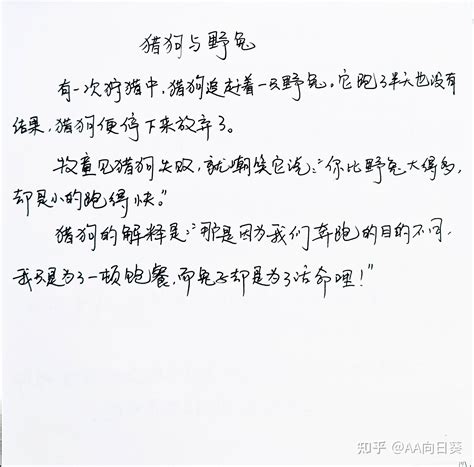 猎狗与野兔
有一次狩猎中，猎狗追赶着一只野兔，它跑了半天也没有
结果，猎狗便停下来放弃了。
牧童见猎狗失败，就嘲笑它说：“你比野兔大得多，
却是小的跑得快。”
猎狗的解释是：“那是因为我们奔跑的目的不同，
我只是为了一顿饱餐，而兔子却是为了活命哩！”
知乎 @AA向日葵